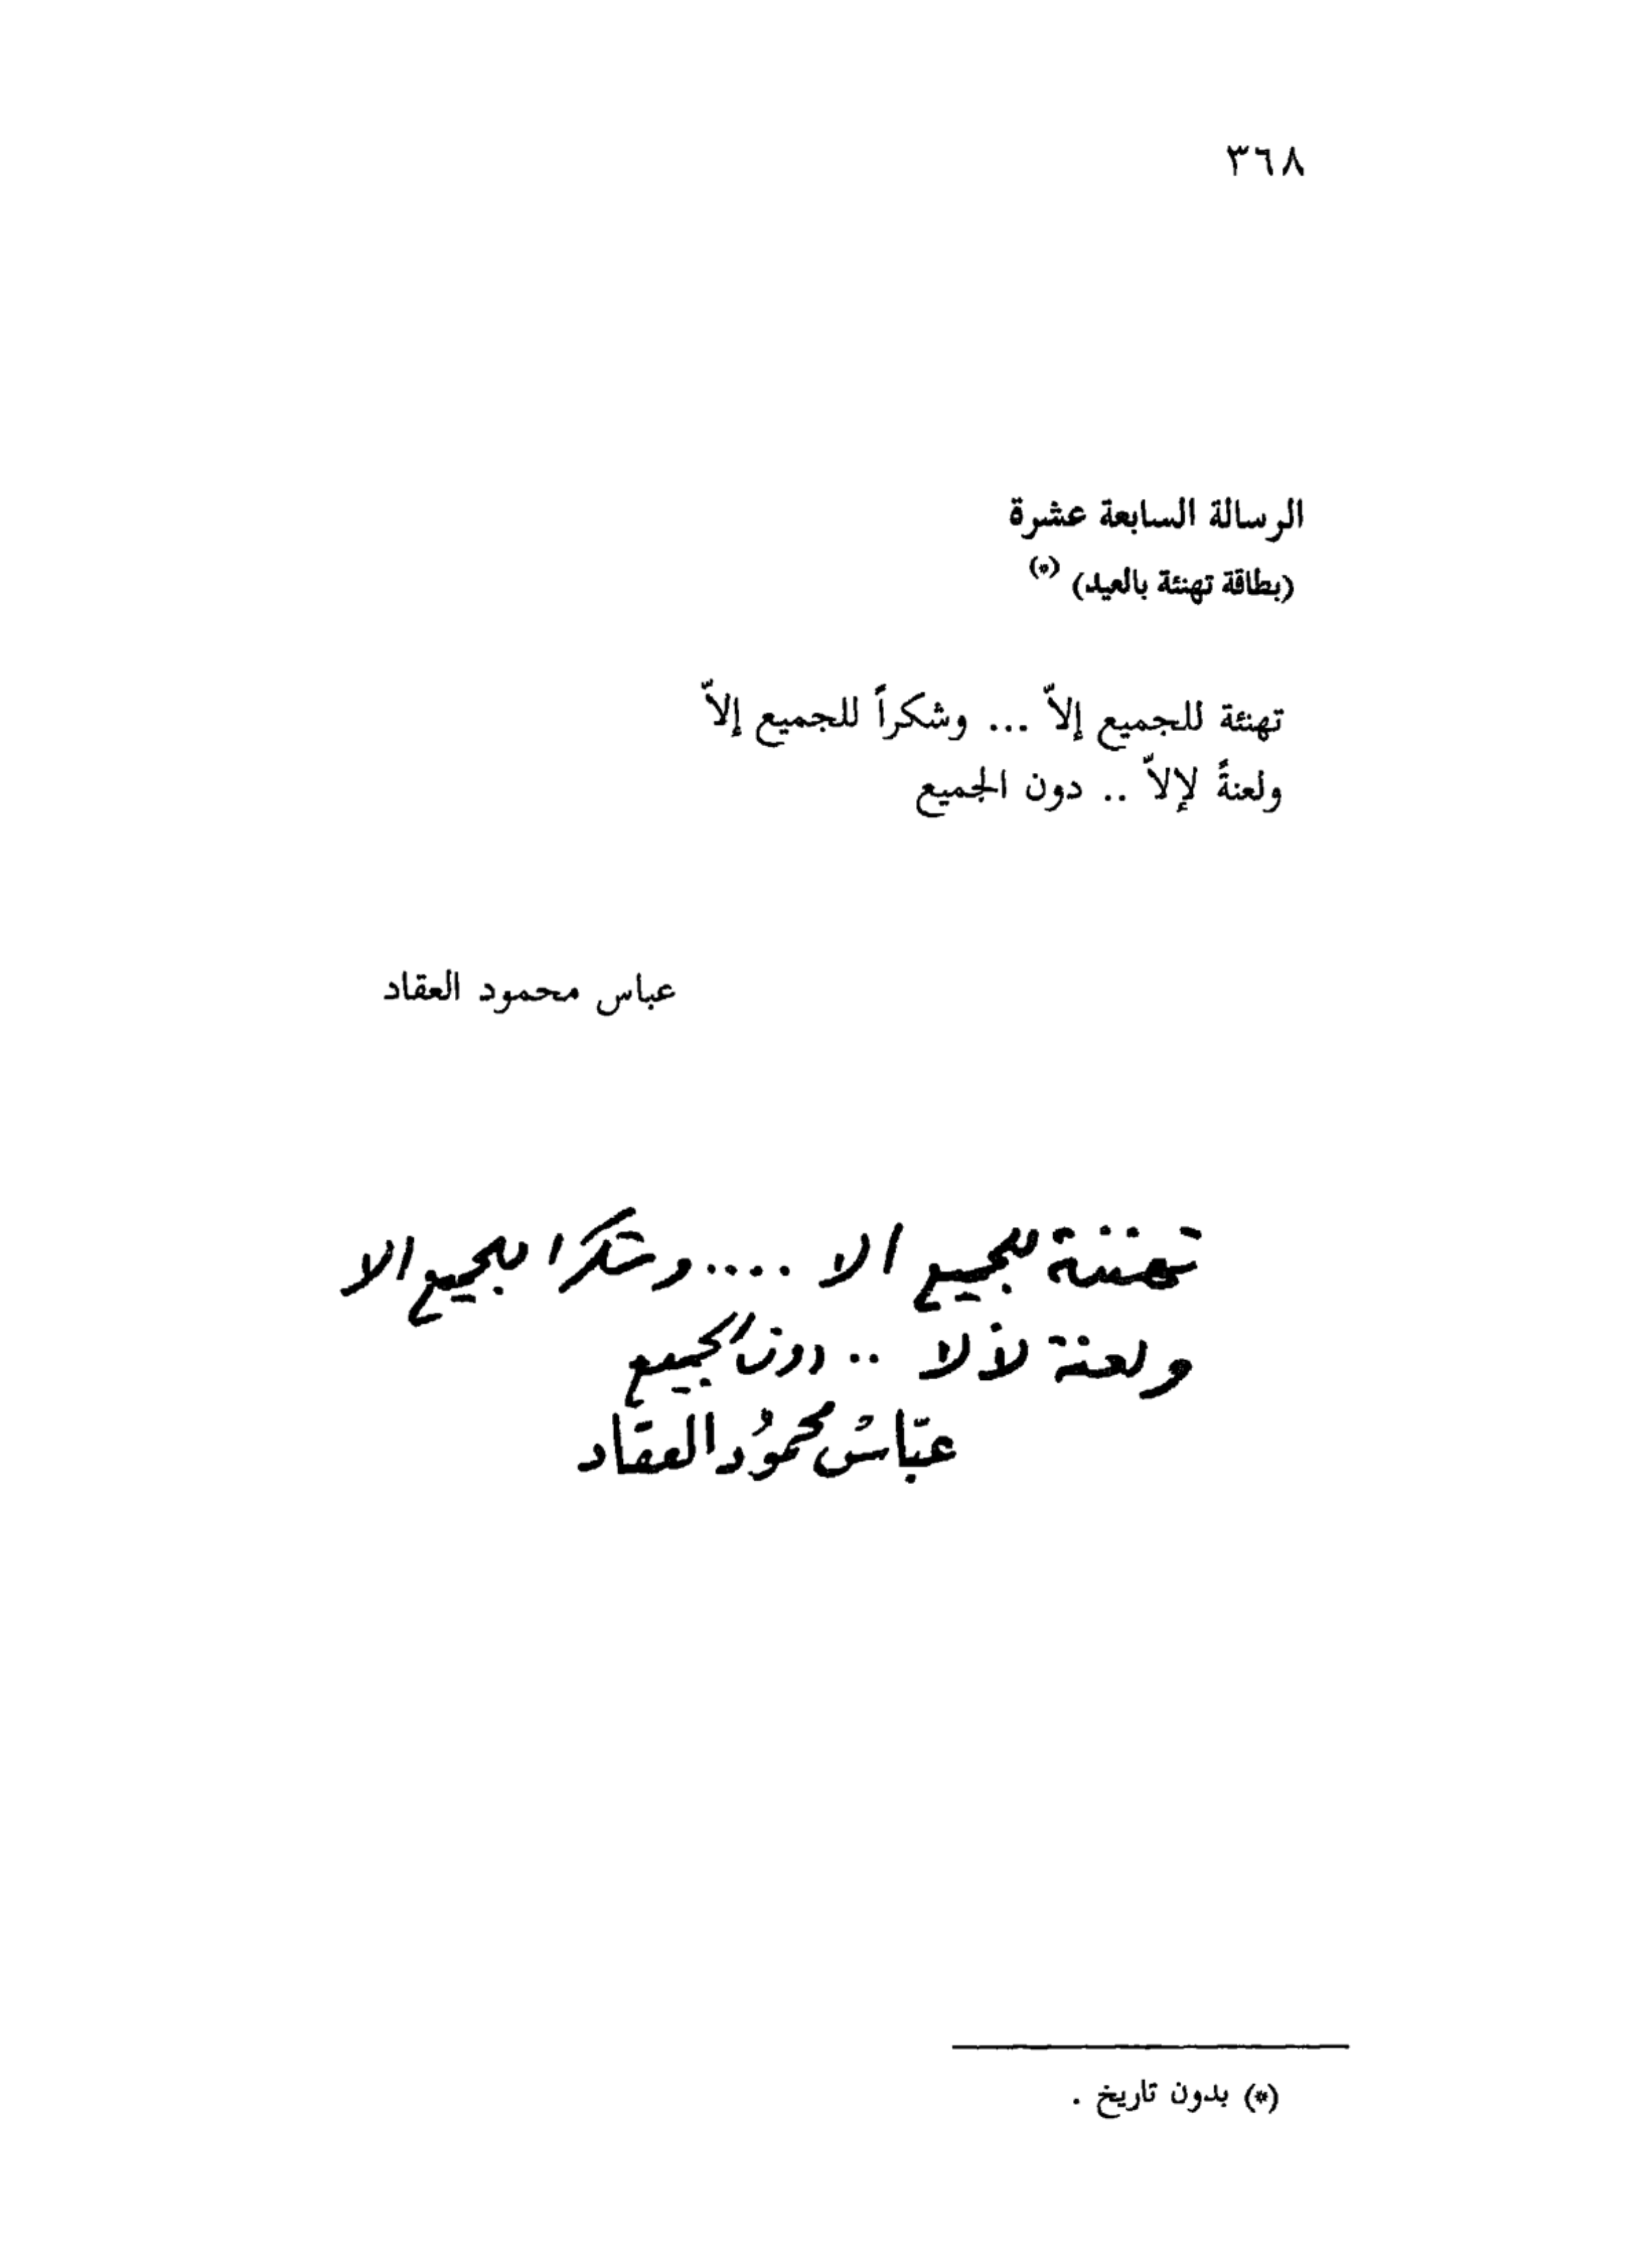 ٣٦٨
الرسالة السابعة عشرة
(بطاقة تهنئة بالعيد) (*)
تهنئة للجميع إلاّ ... وشكراً للجميع إلاّ
ولعنةً لإلاّ .. دون الجميع
عباس محمود العقاد
تهنئة للجميع الا .... وشكرا للجميع الا
ولعنة لألا .. دون الجميع
عبّاس محمُود العقاد
(*) بدون تاريخ .